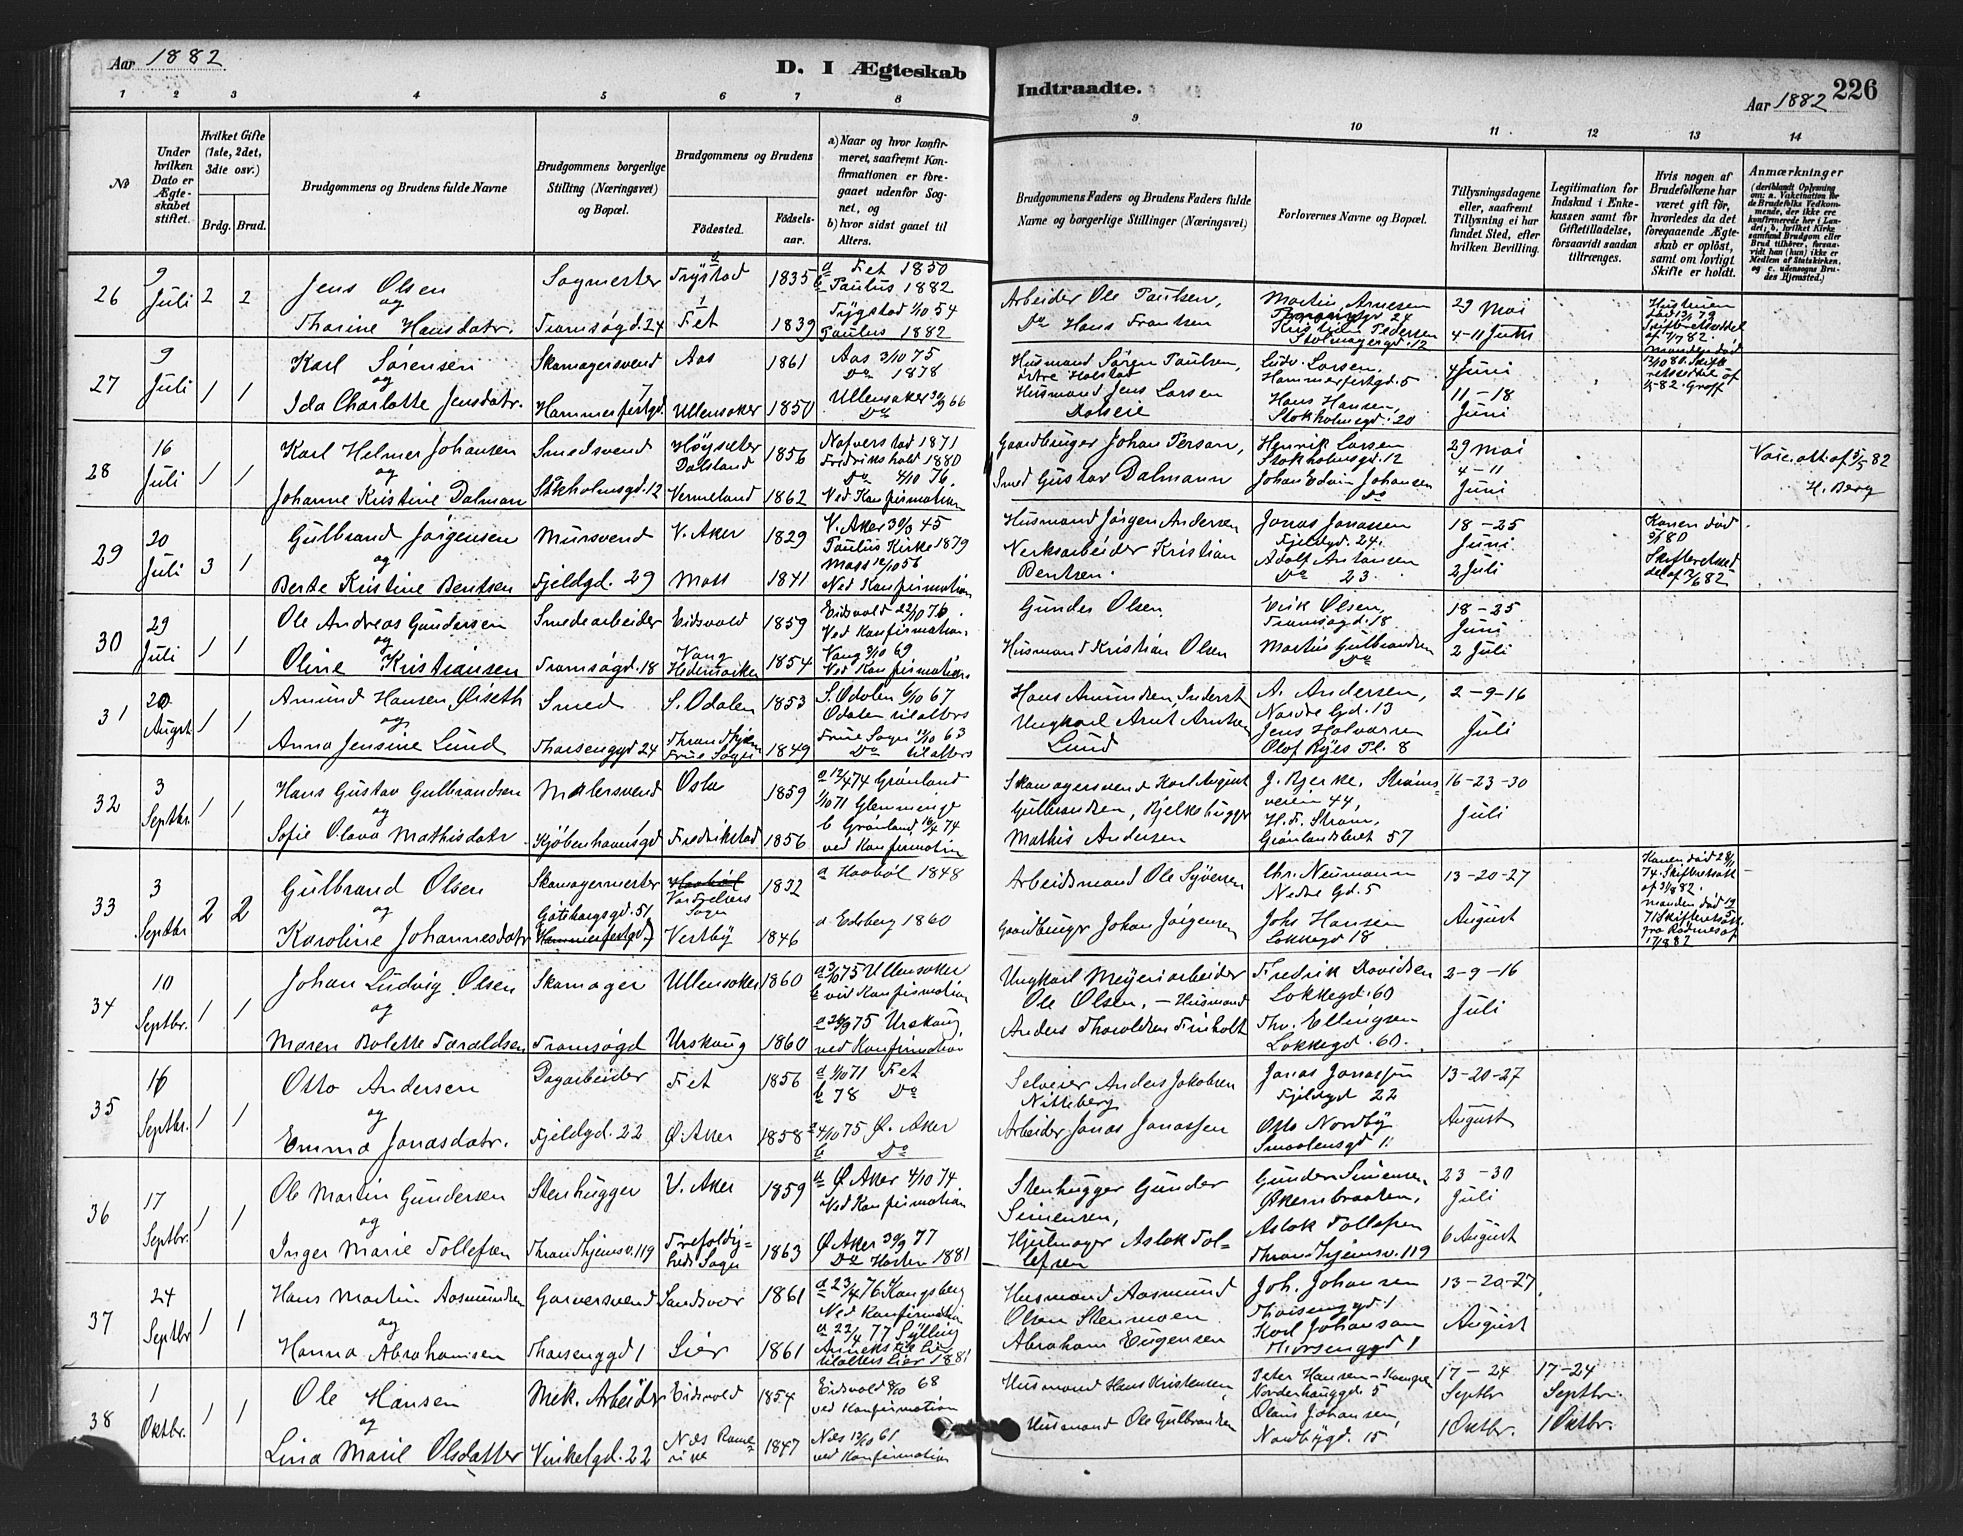 Aar 1882
D. I Ægteskab
Indtraadte.
Aar 1882
226
1 2 3 4 5 6 7 8 9 10 11 12 13 14
№
Under hvilken Dato er Ægteskabet stiftet.
Hvilket Gifte (1ste, 2det, 3die osv.)
Brdg. Brud.
Brudgommens og Brudens fulde Navne
Brudgommens borgerlige Stilling (Næringsvei) og Bopæl.
Brudgommens og Brudens
Fødested.
Fødselsaar.
a) Naar og hvor konfirmeret, saafremt Konfirmationen er foregaaet udenfor Sognet, og
b) hvor sidst gaaet til Alters.
Brudgommens Faders og Brudens Faders fulde Navne og borgerlige Stillinger (Næringsvei)
Forlovernes Navne og Bopæl.
Tillysningsdagene eller, saafremt Tillysning ei har fundet Sted, efter hvilken Bevilling.
Legitimation for Indskud i Enkekassen samt for Giftetilladelse, forsaavidt saadan tiltrænges.
Hvis nogen af Brudefolkene har været gift før, hvorledes da det foregaaende Ægteskab er opløst, samt om lovligt Skifte er holdt.
Anmærkninger
(deriblandt Oplysning om: a. Vakcination for de Brudefolks Vedkommende, der ikke ere konfirmerede her i Landet; b. hvilket Kirkesamfund Brudgom eller Brud tilhører, forsaavidt han (hun) ikke er Medlem af Statskirken, og c. udensogns Brudes Hjemsted.)
26 9 Juli 2 2 Jens Olsen Sagmester Trygstad 1835 a Fet 1850
b Paulus 1882
og
Tharine Hansdatr. Tromsøgd. 24 Fet 1839 Trygstad 1/10 54
Paulus 1882
Arbeider Ole Paulsen, Martin Arnesen
Tromsøgd 24 29 Mai
Do Hans Frantsen Kristian Pedersen
Stokholmsgd. 12 4-11 Juni
27 9 Juli 1 1 Karl Sørensen Skomagersvend Aas 1861 Aas 3/10 75
Do 1878
og
Ida Charlotte Jensdatr. Hammerfestgd. 7 Ullensaker 1850 Ullensaker 30/9 66
Do
Husmand Søren Paulsen, Ludv. Larsen, 4 Juni
østre Holstad Hammerfestgd. 5
Husmand Jens Larsen Hans Hansen, 11-18
Stokholmsgd. 20 Juni
28 16 Juli 1 1 Karl Helmer Johansen Smedsvend Høysæter
Dalsland 1856 Nafverstad 1871
Fredrikshald 1880
og
Johanne Kristine Dalman Stokholmsgd. 12 Vermeland 1862 Do 4/10 76
Ved Konfirmation
Gaardbruger Johan Person, Henrik Larsen
Stokholmsgd. 12 29 Mai
Smed Gustav Dalmann Johan Edvin Johansen
Do 4-11
Juni
Vacc. att. af 5/5 82
H. Berg
29 20 Juli 3 1 Gulbrand Jørgensen Mursvend V. Aker 1829 V. Aker 30/9 45
Paulus Kirke 1879
og
Berte Kristine Bentsen Fjeldgd. 29 Moss 1841 Moss 12/10 56
Ved Konfirmation
Husmand Jørgen Andersen Jonas Jonassen
Fjeldgd. 24. 18-25
Juni
Verksarbeider Kristian
Bentsen. Adolf Antonsen
Do 23. 2 Juli
Konen død
3/5 80
30 29 Juli 1 1 Ole Andreas Gundersen Smedearbeider Eidsvold 1859 Eidsvold 22/10 76.
Ved Konfirmation.
og
Oline Kristiansen Tromsøgd. 18 Vang
Hedemarken 1854 Vang 3/10 69
Ved Konfirmation
Gunder Olsen Erik Olsen,
Tromsøgd. 18 18-25
Juni
Husmand Kristian Olsen Martin Gulbrandsen
Do 2 Juli
31 20 August 1 1 Amund Hansen Øiseth Smed S. Odalen 1853 S. Odalen 6/10 67
Odalen tilalters
og
Anna Jensine Lund Thorsenggd 24 Throndhjem
Frue Sogn 1849 Frue Sogn 11/10 63
Do tilalters
Hans Amundsen, A. Andersen,
Nordre Gd. 13 2-9-16
Juli
Ungkarl Arnt
Lund Jens Halvorsen
Olof Ryes Pl. 8
32 3 Septbr. 1 1 Hans Gustav Gulbrandsen Malersvend Oslo 1859 a 12/4 74 Grønland
1/10 71 Glemminge
og
Sofie Olava Mathisdatr Kjøbenhavnsgd 7 Fredrikstad 1856 b Grønland 12/4 74
ved Konfirmation
Skomagersvend Karl August
Gulbrandsen, Bjelkehugger
Mathis Andersen
J. Bjerke, Strømsveien 44,
H. F. Strøm,
Grønlandsleret 57
16-23-30
Juli
33 3 Septbr 2 2 Gulbrand Olsen Skomagermester Haabøl
Vor Frelsers
Sogn 1832 a Haabøl 1848
og Gøteborgsgd. 51
Karoline Johannesdatr Hammerfestgd 7 Vestby 1846 a Edsberg 1860
Arbeidsmand Ole Syversen Chr. Neumann
Nedre Gd. 5 13-20-27
August
Gaardbruger Johan Jørgensen Johs Hansen
Løkkegd 18
34 10 Septbr. 1 1 Johan Ludvig Olsen Skomager Ullensaker 1860 a 3/10 75 Ullensaker
b ved Konfirmation
og
Maren Bolette Taraldsen Tromsøgd Urskoug 1860 a 26/9 75 Urskoug,
ved Konfirmation
Ungkarl Meyeriarbeider
Ole Olsen, - Husmand
Anders Tharaldsen Finholt
Fredrik Davidsen
Løkkegd. 60
Thv. Ellingsen
Løkkegd. 60.
2-9-16
Juli
35 16 Septbr. 1 1 Otto Andersen Dagarbeider Fet 1856 a 1/10 71 Fet
b 78 Do
og
Emma Jonasdatr. Fjeldgd. 22 Ø. Aker 1858 a 4/10 75 Ø. Aker
b Do
Selveier Anders Jakobsen
Nitteberg
Arbeider Jonas Jonassen
Jonas Jonassen
Fjeldgd 22
Otto Nordby
Smaalensgd 11
13-20-27
August
36 17 Septbr. 1 1 Ole Martin Gundersen Stenhugger V. Aker 1859 a Ø Aker 4/10 74
Ved Konfirmation
og
Inger Marie Tollefsen Throndhjemsv. 119 Trefoldigheds Sogn 1863 Ø Aker 30/9 77
Do Høsten 1881
Stenhugger Gunder
Simensen,
Hjulmager Aslak Tollefsen
Gunder Simensen
Økernbraaten,
Aslak Tollefsen
Throndhjemsv. 119
23-30
Juli
6 August
37 24 Septbr 1 1 Hans Martin Aasmundsen Garversvend Sandsvær 1861 a 23/4 76 Kongsberg
Ved Konfirmation
og
Hanna Abrahamsen Thorsenggd 1 Lier 1861 a 22/4 77 Sylling
Annex til Lier
tilalters Lier 1881
Husmand Aasmund
Olsen Stenmoen
Abraham Eugensen
Joh. Johansen
Thorsenggd 1
Karl Johansen
Thorsenggd 1
13-20-27
August
38 1 Oktbr. 1 1 Ole Hansen Mek. Arbeider Eidsvold 1854 Eidsvold 8/10 68
ved Konfirmation
og
Lina Marie Olsdatter Vinkelgd. 22 Næs Romerike 1847 Næs 12/10 61
ved Konfirmation
Husmand Hans Kristensen, Peter Hansen-Kampen
Norderhouggd. 5 17-24
Septbr 17-24
Septbr.
Husmand Ole Gulbrandsen Olaus Johansen,
Nordbygd. 15 1 Oktbr. 1 Oktbr.